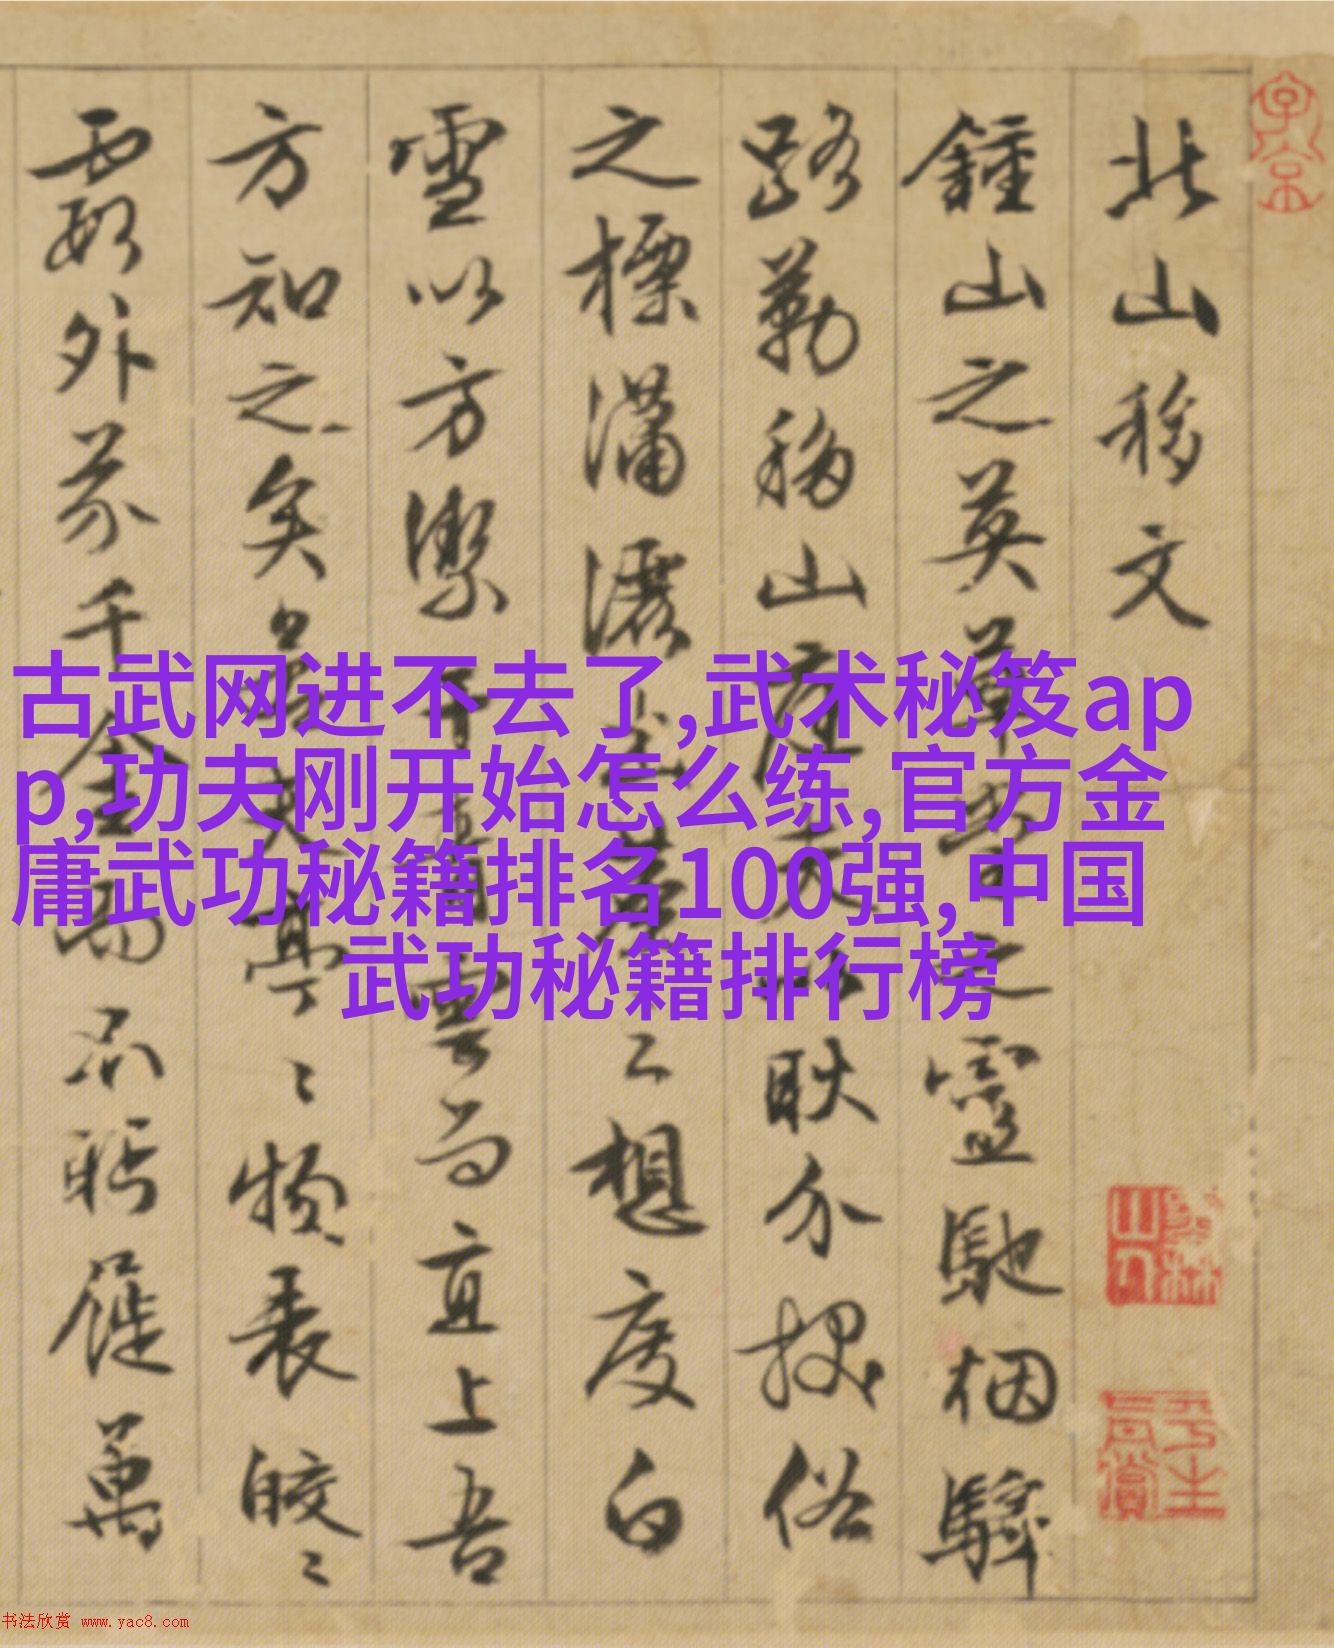 北山移文
鍾山之英草堂之靈馳烟驛
路勒移山庭夫以耿介拔俗
之標瀟灑出塵之想度白
雪以方潔干青雲而直上吾
方知之矣若其亭〻物表皎〻
霞外芥千金而不眄屣萬
古武网进不去了,武术秘笈ap
p,功夫刚开始怎么练,官方金
庸武功秘籍排名100强,中国
武功秘籍排行榜
书法欣赏 www.yac8.com